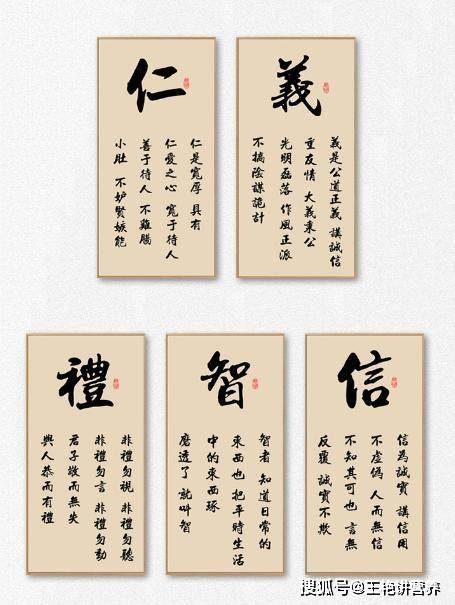 仁
仁是寬厚 具有
仁愛之心 寬于待人
善于待人 不雞腸
小肚 不妒賢嫉能
義
義是公道正義 講誠信
重友情 大義秉公
光明磊落 作風正派
不搞陰謀詭計
禮
非禮勿視 非禮勿聽
非禮勿言 非禮勿動
君子敬而無失
與人恭而有禮
智
智者 知道日常的
東西也 把平時生活
中的東西琢
磨透了 就叫智
信
信為誠實 講信用
不虛偽 人而無信
不知其可也 言無
反覆 誠實不欺
搜狐号@王艳讲营养